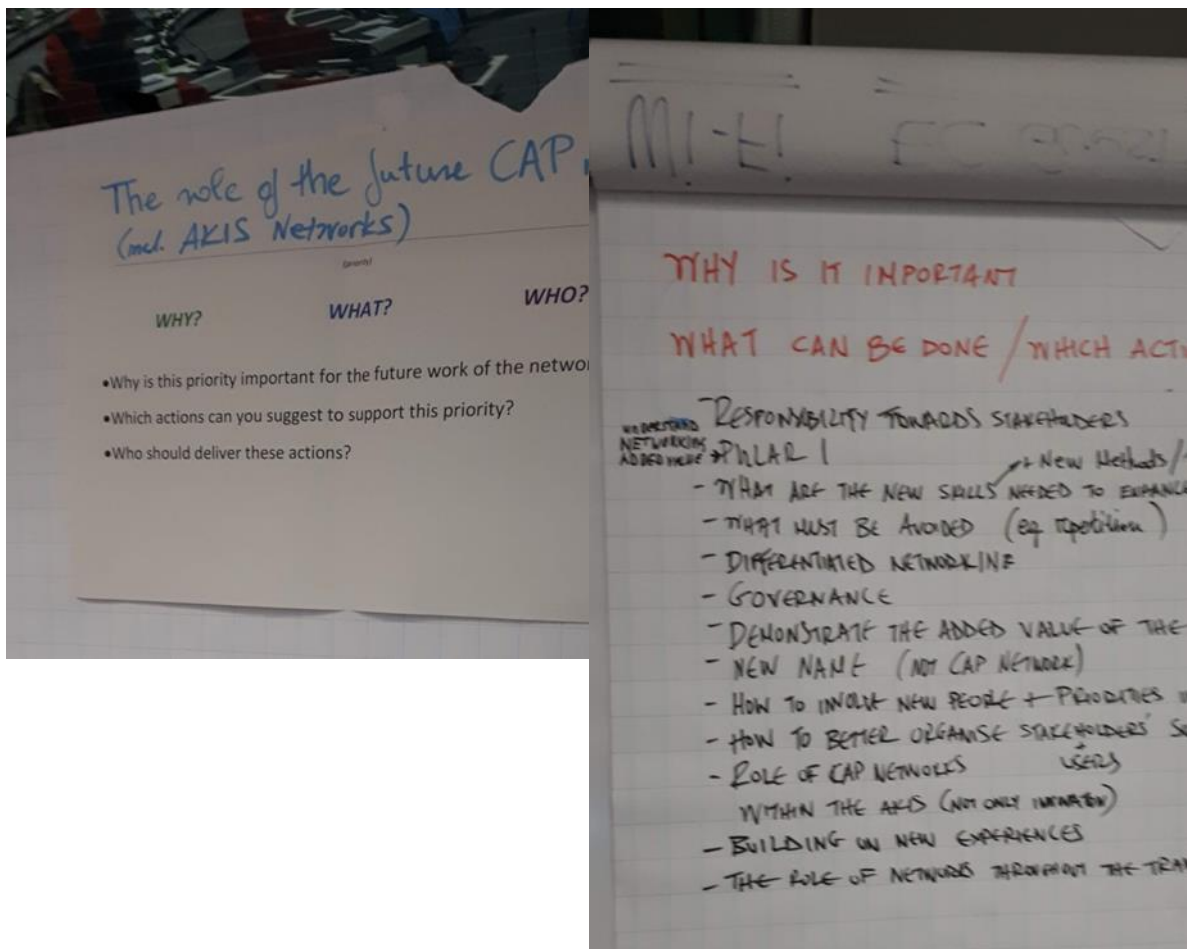 The role of the future CAP
(incl. AKIS Networks)
WHY?
WHAT?
WHO?
•Why is this priority important for the future work of the netwo
•Which actions can you suggest to support this priority?
•Who should deliver these actions?
WHY IS IT IMPORTANT
WHAT CAN BE DONE / WHICH ACT
- RESPONSIBILITY TOWARDS STAKEHOLDERS
UNDERSTAND
NETWORKING
ADDED VALUE → PILLAR I
+ New Methods/
- WHAT ARE THE NEW SKILLS NEEDED TO ENHANCE
- WHAT MUST BE AVOIDED (eg repetition)
- DIFFERENTIATED NETWORKING
- GOVERNANCE
- DEMONSTRATE THE ADDED VALUE OF THE
- NEW NAME (NOT CAP NETWORK)
- HOW TO INVOLVE NEW PEOPLE + PRIORITIES
- HOW TO BETTER ORGANISE STAKEHOLDERS'
+ USERS
- ROLE OF CAP NETWORKS
WITHIN THE AKIS (NOT ONLY INNOVATION)
- BUILDING ON NEW EXPERIENCES
- THE ROLE OF NETWORKS THROUGHOUT THE TRA